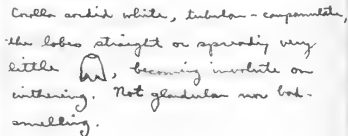 Corolla sordid white, tubular-campanulate,
the lobes straight or spreading very
little , becoming involute on
withering. Not glandular nor bad-
smelling.